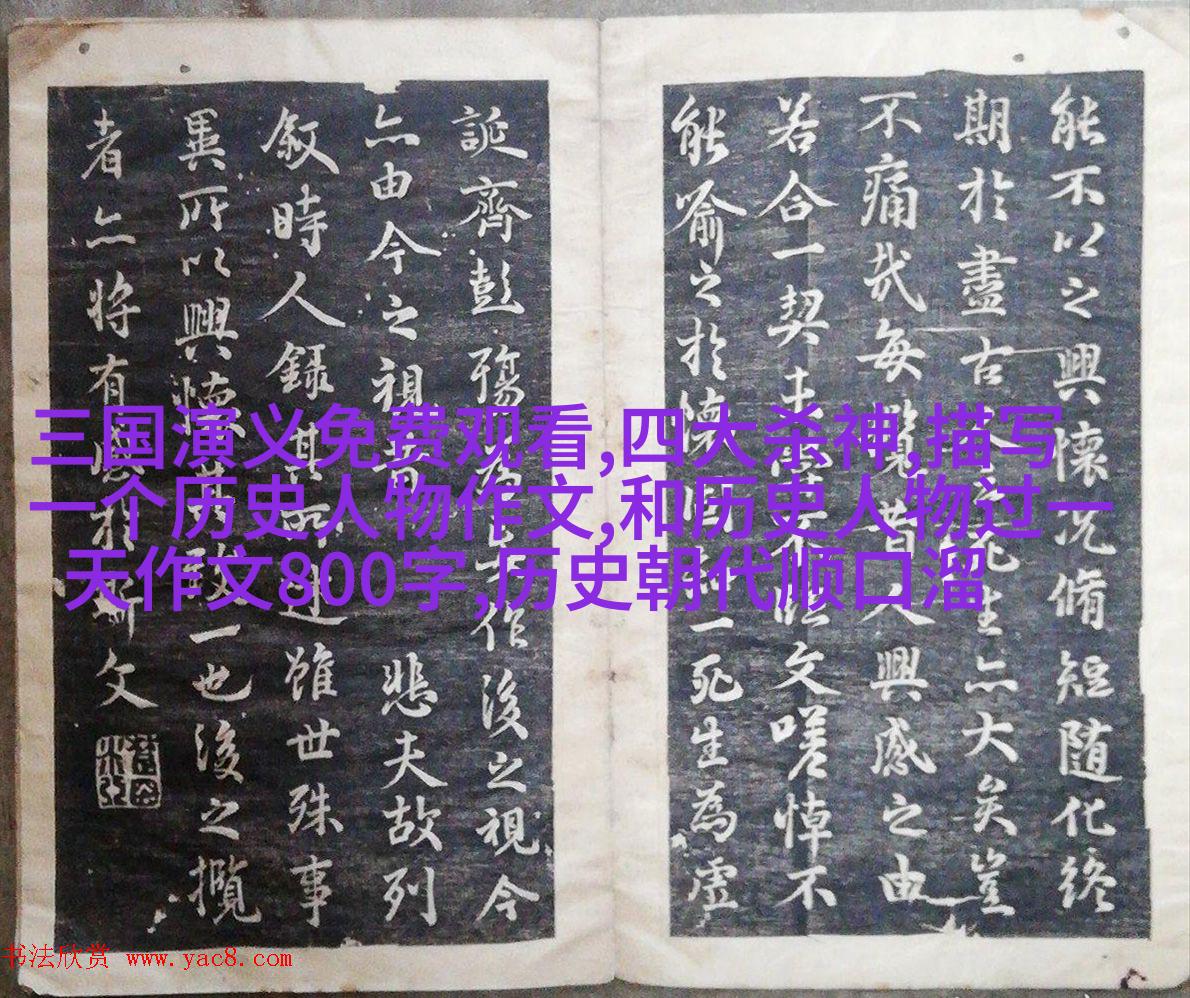 能不以之興懷况脩短随化終
期於盡古人云死生亦大矣豈
不痛哉每攬昔人興感之由
若合一契未嘗不臨文嗟悼不
能喻之於懷固知一死生為虛
誕齊彭殤為妄作後之視今
亦由今之視昔悲夫故列
敘時人錄其所述雖世殊事
異所以興懷其致一也後之攬
者亦将有感於斯文
三国演义免费观看,四大杀神,描写
一个历史人物作文,和历史人物过一
天作文800字,历史朝代顺口溜
书法欣赏 www.yac8.com